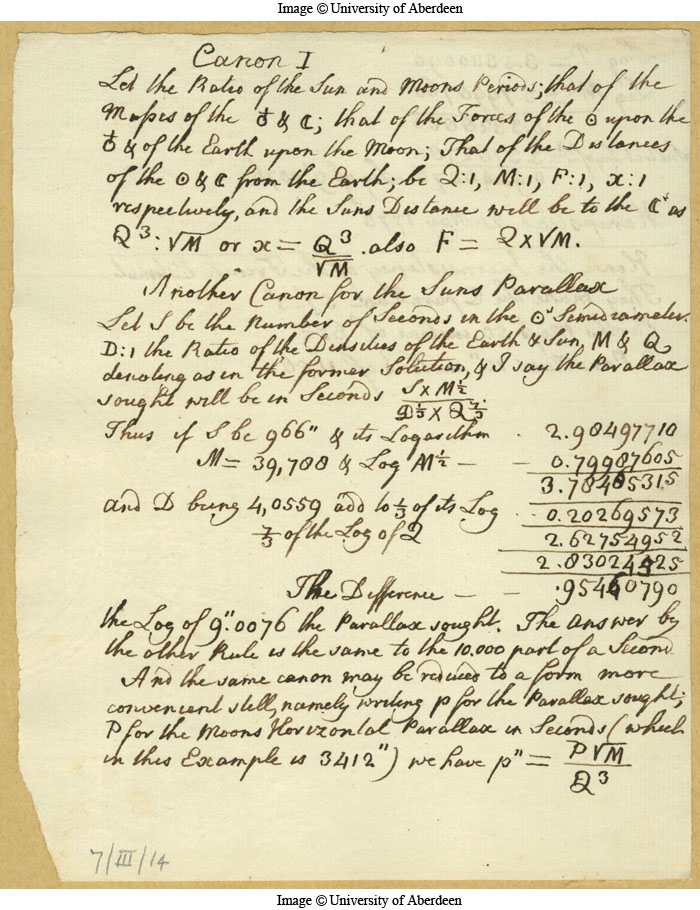 Image © University of Aberdeen
Canon I
Let the Ratio of the Sun and Moons Periods; that of the
Masses of the ♁ & ☾; that of the Forces of the ☉ upon the
♁ & of the Earth upon the Moon; That of the Distances
of the ☉ & ☾ from the Earth; be Q:1, M:1, F:1, x:1
respectively, and the Suns Distance will be to the ☾s as
Q³ : √M or x = Q³/√M . also F = Q x √M.
Another Canon for the Suns Parallax
Let S be the Number of Seconds in the ☉s Semidiameter.
D:1 the Ratio of the Densities of the Earth & Sun, M & Q
denoting as in the former Solution, & I say the Parallax
sought will be in Seconds S x M^½ / D^⅓ x Q^7/3.
Thus if S be 966" & its Logarithm . 2.98497710
M = 39,788 & Log M^½ — - 0.79987605
3.78485315
and D being 4,0559 add to ⅓ of its Log . 0.20269573
7/3 of the Log of Q 2.62754952
2.83024525
The Difference — - .95460790
the Log of 9".0076 the Parallax sought. The answer by
the other Rule is the same to the 10.000 part of a Second
And the same canon may be reduced to a form more
convenient still, namely writing p for the Parallax sought;
P for the Moons Horizontal Parallax in Seconds (which
in this Example is 3412") we have p" = P√M/Q³
7/III/14
Image © University of Aberdeen